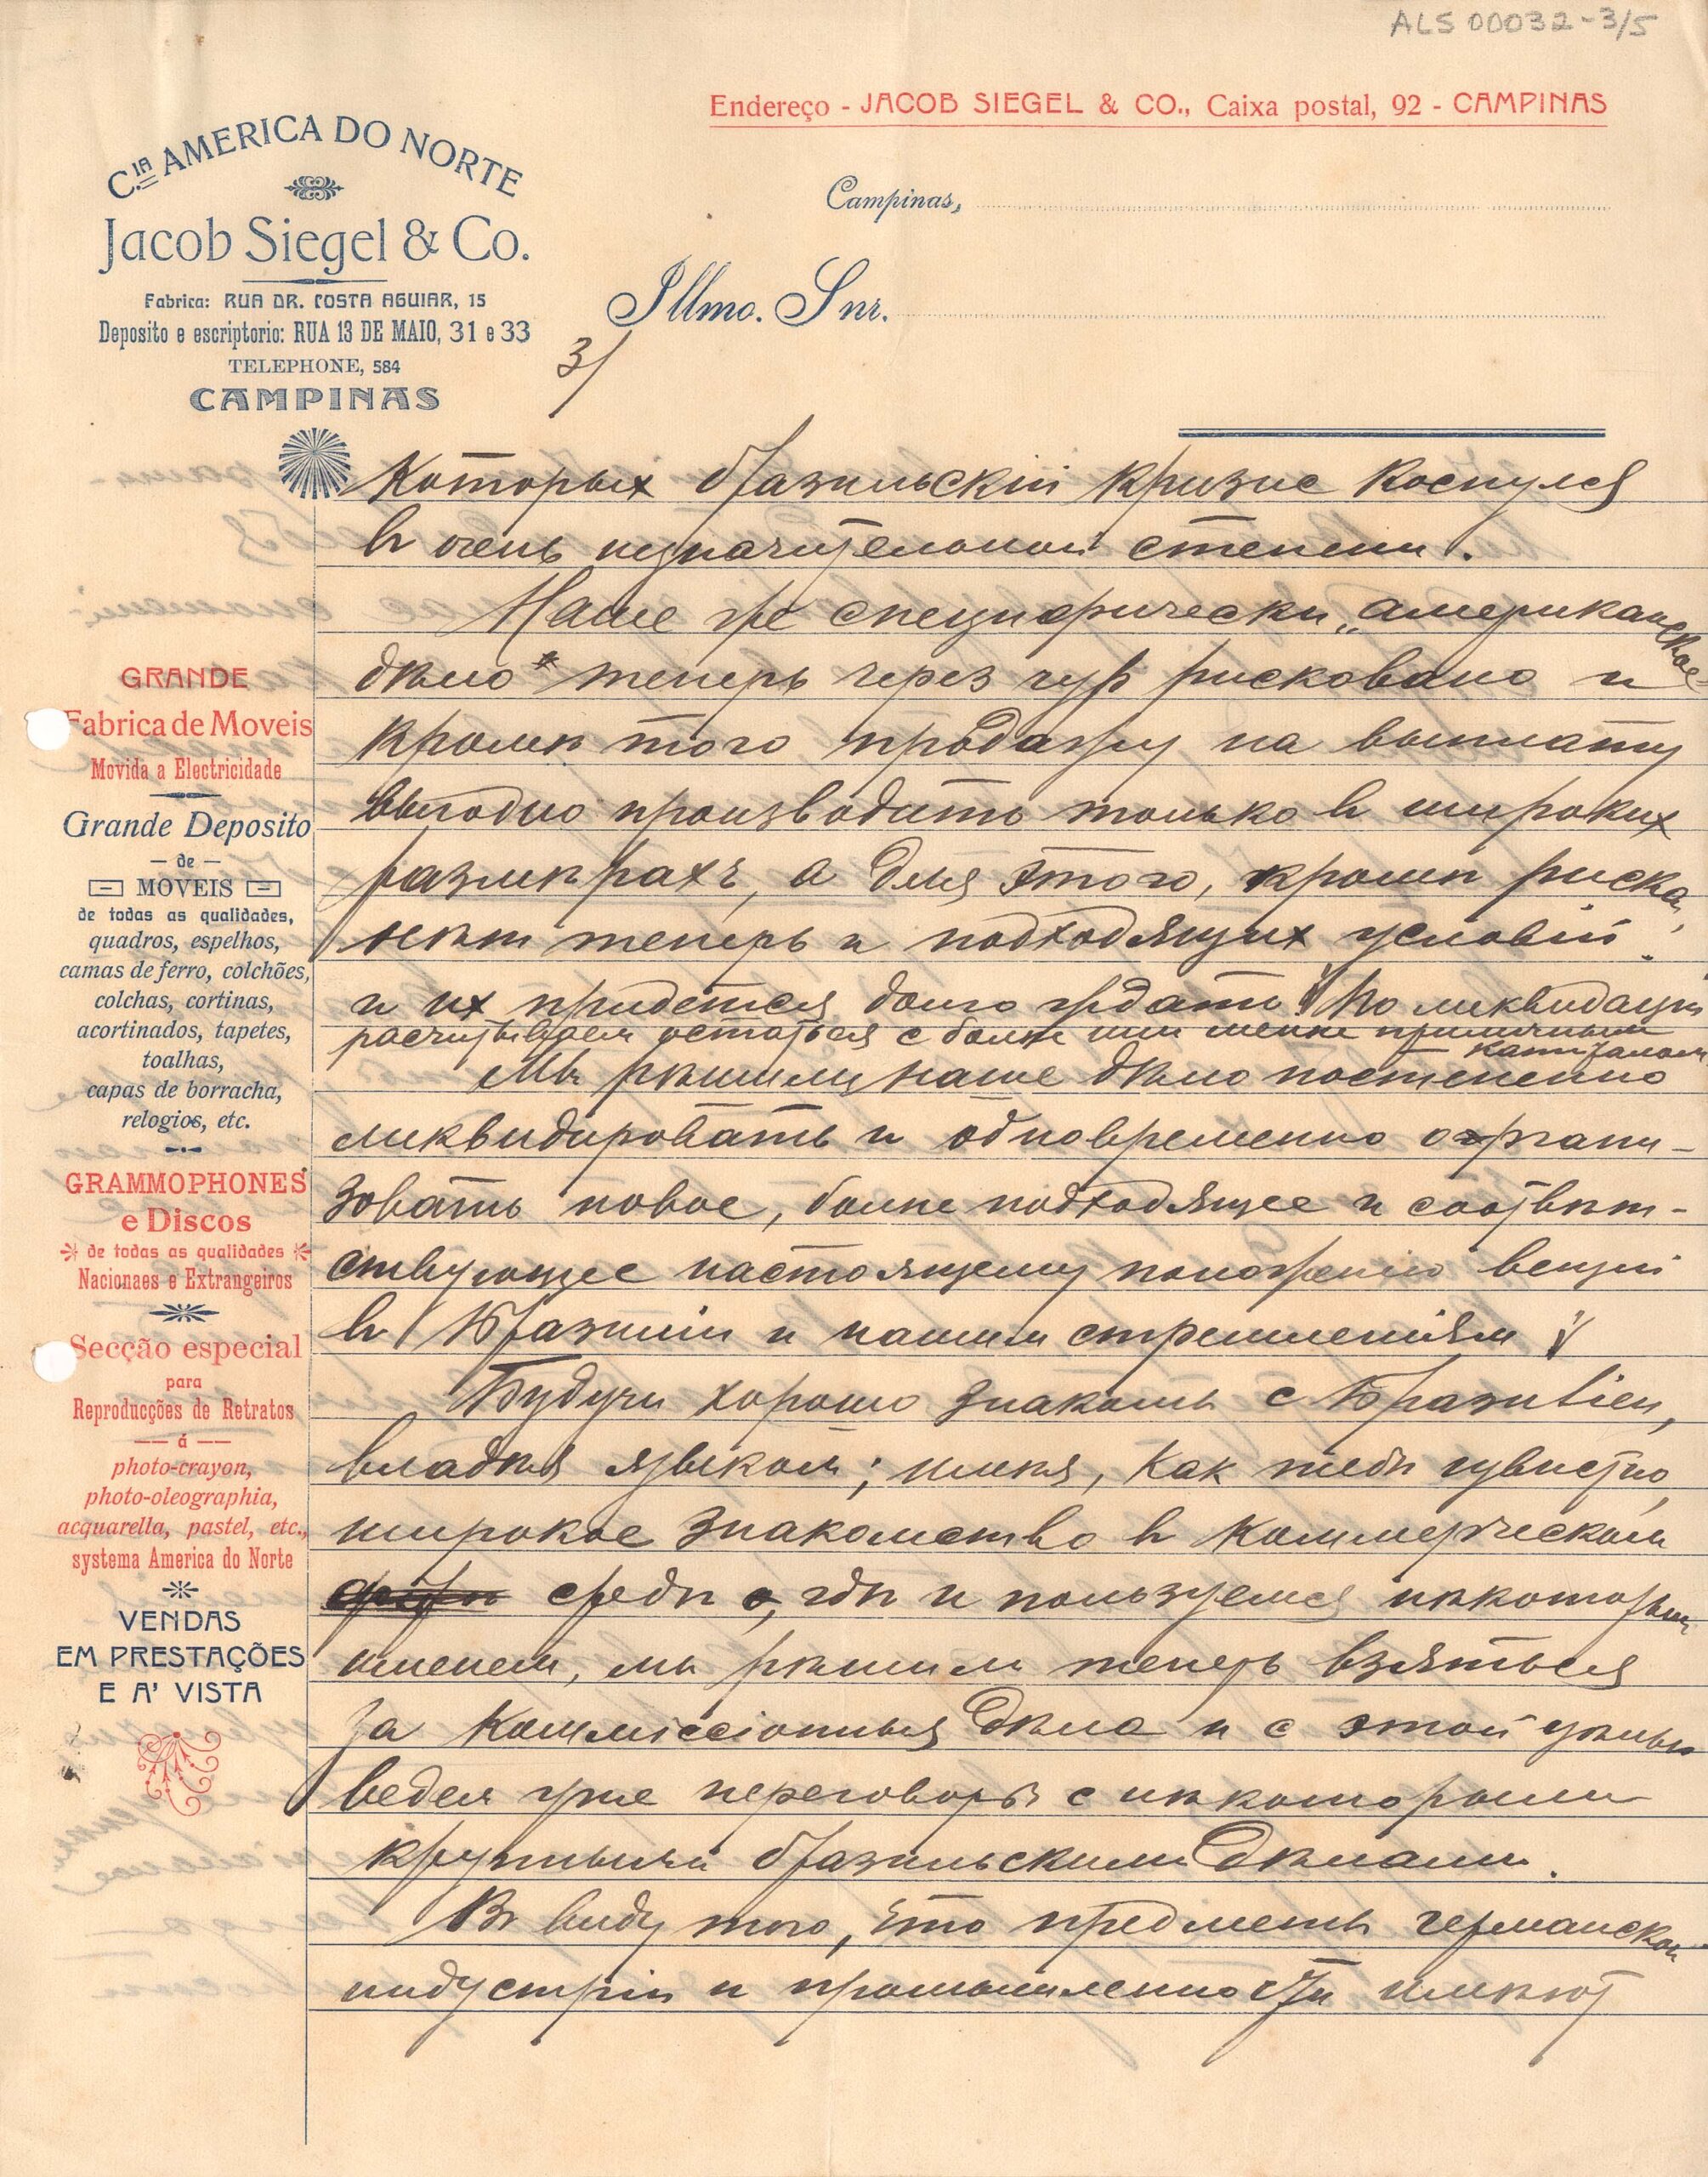 ALS 00032-3/5
Endereço - JACOB SIEGEL & CO., Caixa postal, 92 - CAMPINAS
Cia AMERICA DO NORTE
Jacob Siegel & Co.
Fabrica: RUA DR. COSTA AGUIAR, 15
Deposito e escriptorio: RUA 13 DE MAIO, 31 e 33
TELEPHONE, 584
CAMPINAS
Campinas,
Illmo. Snr.
3/
Которых бразильскій кризис коснулся
в очень незначительной степени.
Наше же специфически „американское
дѣло" теперь через чур рисковано и
кромѣ того продажу на выплату
выгодно производить только в широких
размѣрахъ, а для этого, кромѣ риска,
нѣт теперь и подходящих условій
и их придется долго ждать. По ликвидаціи
расчитываем остаться с болѣе или менѣе приличным
капиталом
Мы рѣшили наше дѣло постепенно
ликвидировать и одновременно органи-
зовать новое, болѣе подходящее и соотвѣт-
ствующее настоящему положенію вещей
в Бразиліи и нашим стремленіям
Будучи хорошо знакомы с Бразиліей,
владѣя языком; имѣя, как тебѣ извѣстно,
широкое знакомство в коммерческой
средѣ, гдѣ и пользуемся нѣкоторым
именем, мы рѣшили теперь взяться
за коммиссіонныя дѣла и с этой цѣлью
ведем уже переговоры с нѣкоторыми
крупными бразильскими дѣлами.
В виду того, что предметы германской
индустріи и промышленности имѣют
GRANDE
Fabrica de Moveis
Movida a Electricidade
Grande Deposito
— de —
MOVEIS
de todas as qualidades,
quadros, espelhos,
camas de ferro, colchões,
colchas, cortinas,
acortinados, tapetes,
toalhas,
capas de borracha,
relogios, etc.
GRAMMOPHONES
e Discos
de todas as qualidades
Nacionaes e Extrangeiros
Secção especial
para
Reproducções de Retratos
— á —
photo-crayon,
photo-oleographia,
acquarella, pastel, etc.,
systema America do Norte
VENDAS
EM PRESTAÇÕES
E A' VISTA